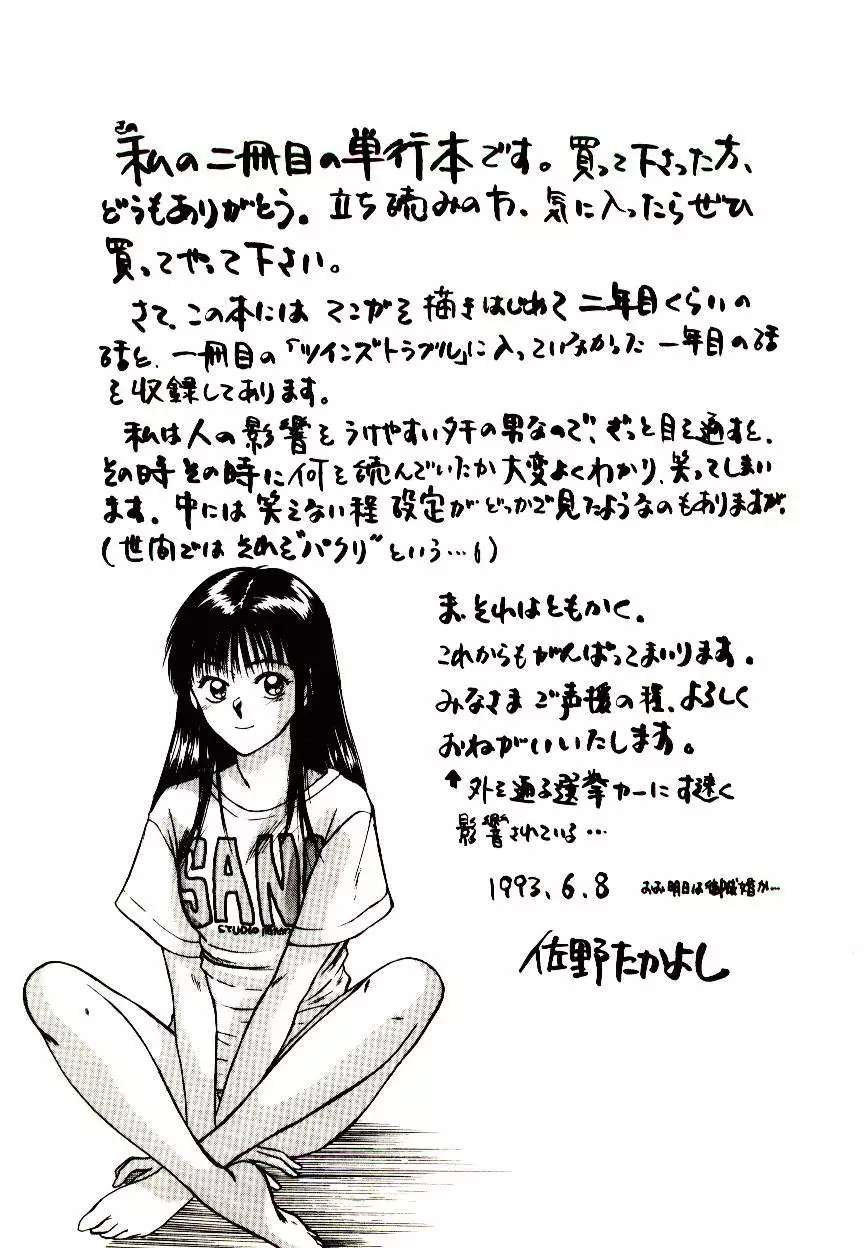 さの
私の二冊目の単行本です。買って下さった方、
どうもありがとう。立ち読みの方、気に入ったらぜひ
買ってやって下さい。
さて、この本には マンガを 描きはじめて 二年目くらいの
話と、一冊目の「ツインズトラブル」に入っていなかった 一年目の話
を収録してあります。
私は人の影響をうけやすいタチの男なので、ざっと目を通すと、
その時その時に何を読んでいたか大変よくわかり、笑ってしまい
ます。中には笑えない程 設定がどっかで見たようなのもありますが、
(世間では それを"パクリ"という…!)
ま、それはともかく。
これからもがんばってまいります。
みなさま ご声援の程、よろしく
おねがいいたします。
↑外を通る選挙カーにす速く
影響されている…
1993.6.8 おお明日は御成婚か…
佐野たかよし
SANO
STUDIO